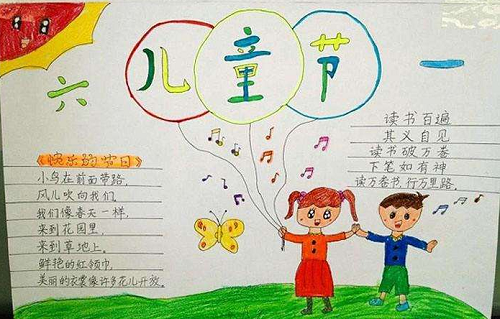 六 儿童节 一
《快乐的节日》
小鸟在前面带路
风儿吹向我们
我们像春天一样,
来到花园里,
来到草地上。
鲜艳的红领巾
美丽的衣裳像许多花儿开放。
读书百遍
其义自见
读书破万卷
下笔如有神
读万卷书,行万里路